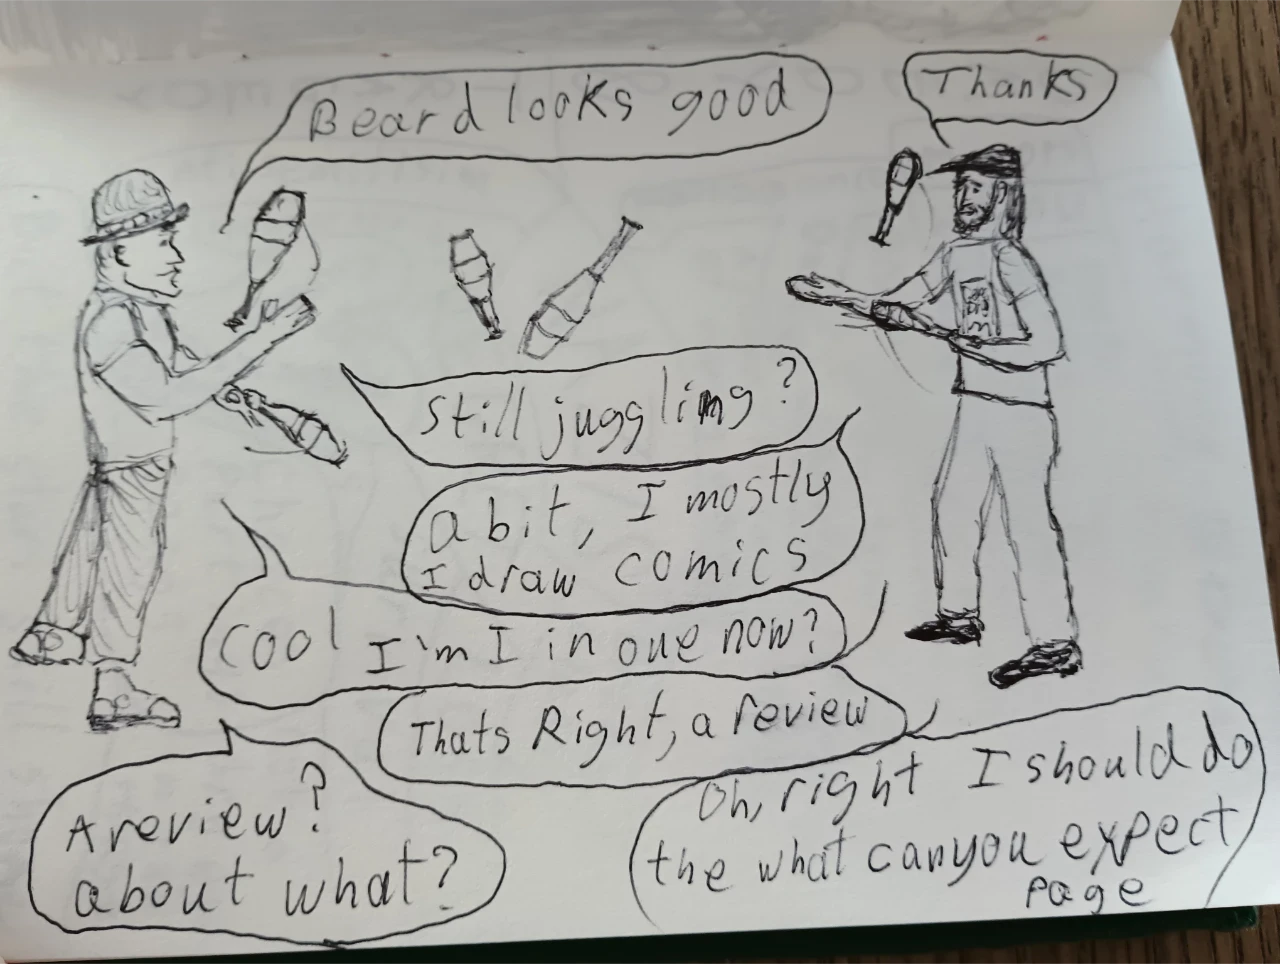 Beard looks good
Thanks
Still juggling?
a bit, I mostly
I draw comics
Cool I'm I in one now?
Thats Right, a review
A review?
about what?
Oh, right I should do
the what can you expect
page